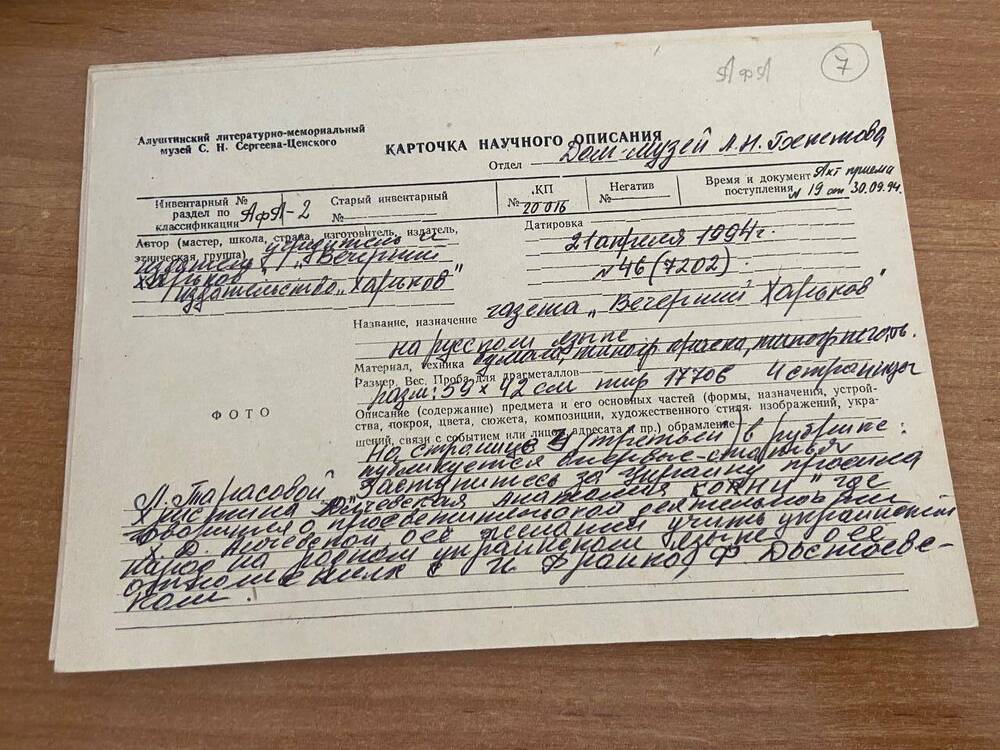 АфА 7
Алуштинский литературно-мемориальный
музей С. Н. Сергеева-Ценского
КАРТОЧКА НАУЧНОГО ОПИСАНИЯ
Отдел Дом-музей А.Н. Бекетова
Инвентарный №
раздел по
классификации АфА-2
Старый инвентарный
№
КП
№ 20016
Негатив
№
Время и документ Акт приема
поступления № 19 от 30.09.94.
Автор (мастер, школа, страна, изготовитель, издатель,
этническая группа) учредитель и
издатель „Вечерний
Харьков"
издательство „Харьков"
Датировка
21 апреля 1994г.
№ 46 (7202).
Название, назначение газета „Вечерний Харьков"
на русском языке
Материал, техника бумага, типогр. краска, типогр. печать.
Размер. Вес. Проба для драгметаллов
разм: 59 х 42 см тир 17706 4 страницы
ФОТО
Описание (содержание) предмета и его основных частей (формы, назначения, устрой-
ства, покроя, цвета, сюжета, композиции, художественного стиля, изображений, укра-
шений, связи с событием или лицом, адресата и пр.) обрамление
На странице 3 (третьей) в рубрике:
публикуется впервые статья
Л. Тарасовой „Заступитесь за Украину просила
Христина Алчевская" где
говорится о просветительской деятельности
Х. Д. Алчевской о её желании учить украинский
народ на родном украинском языке, о её
с И. Франко, Ф. Достоевс-
ким.